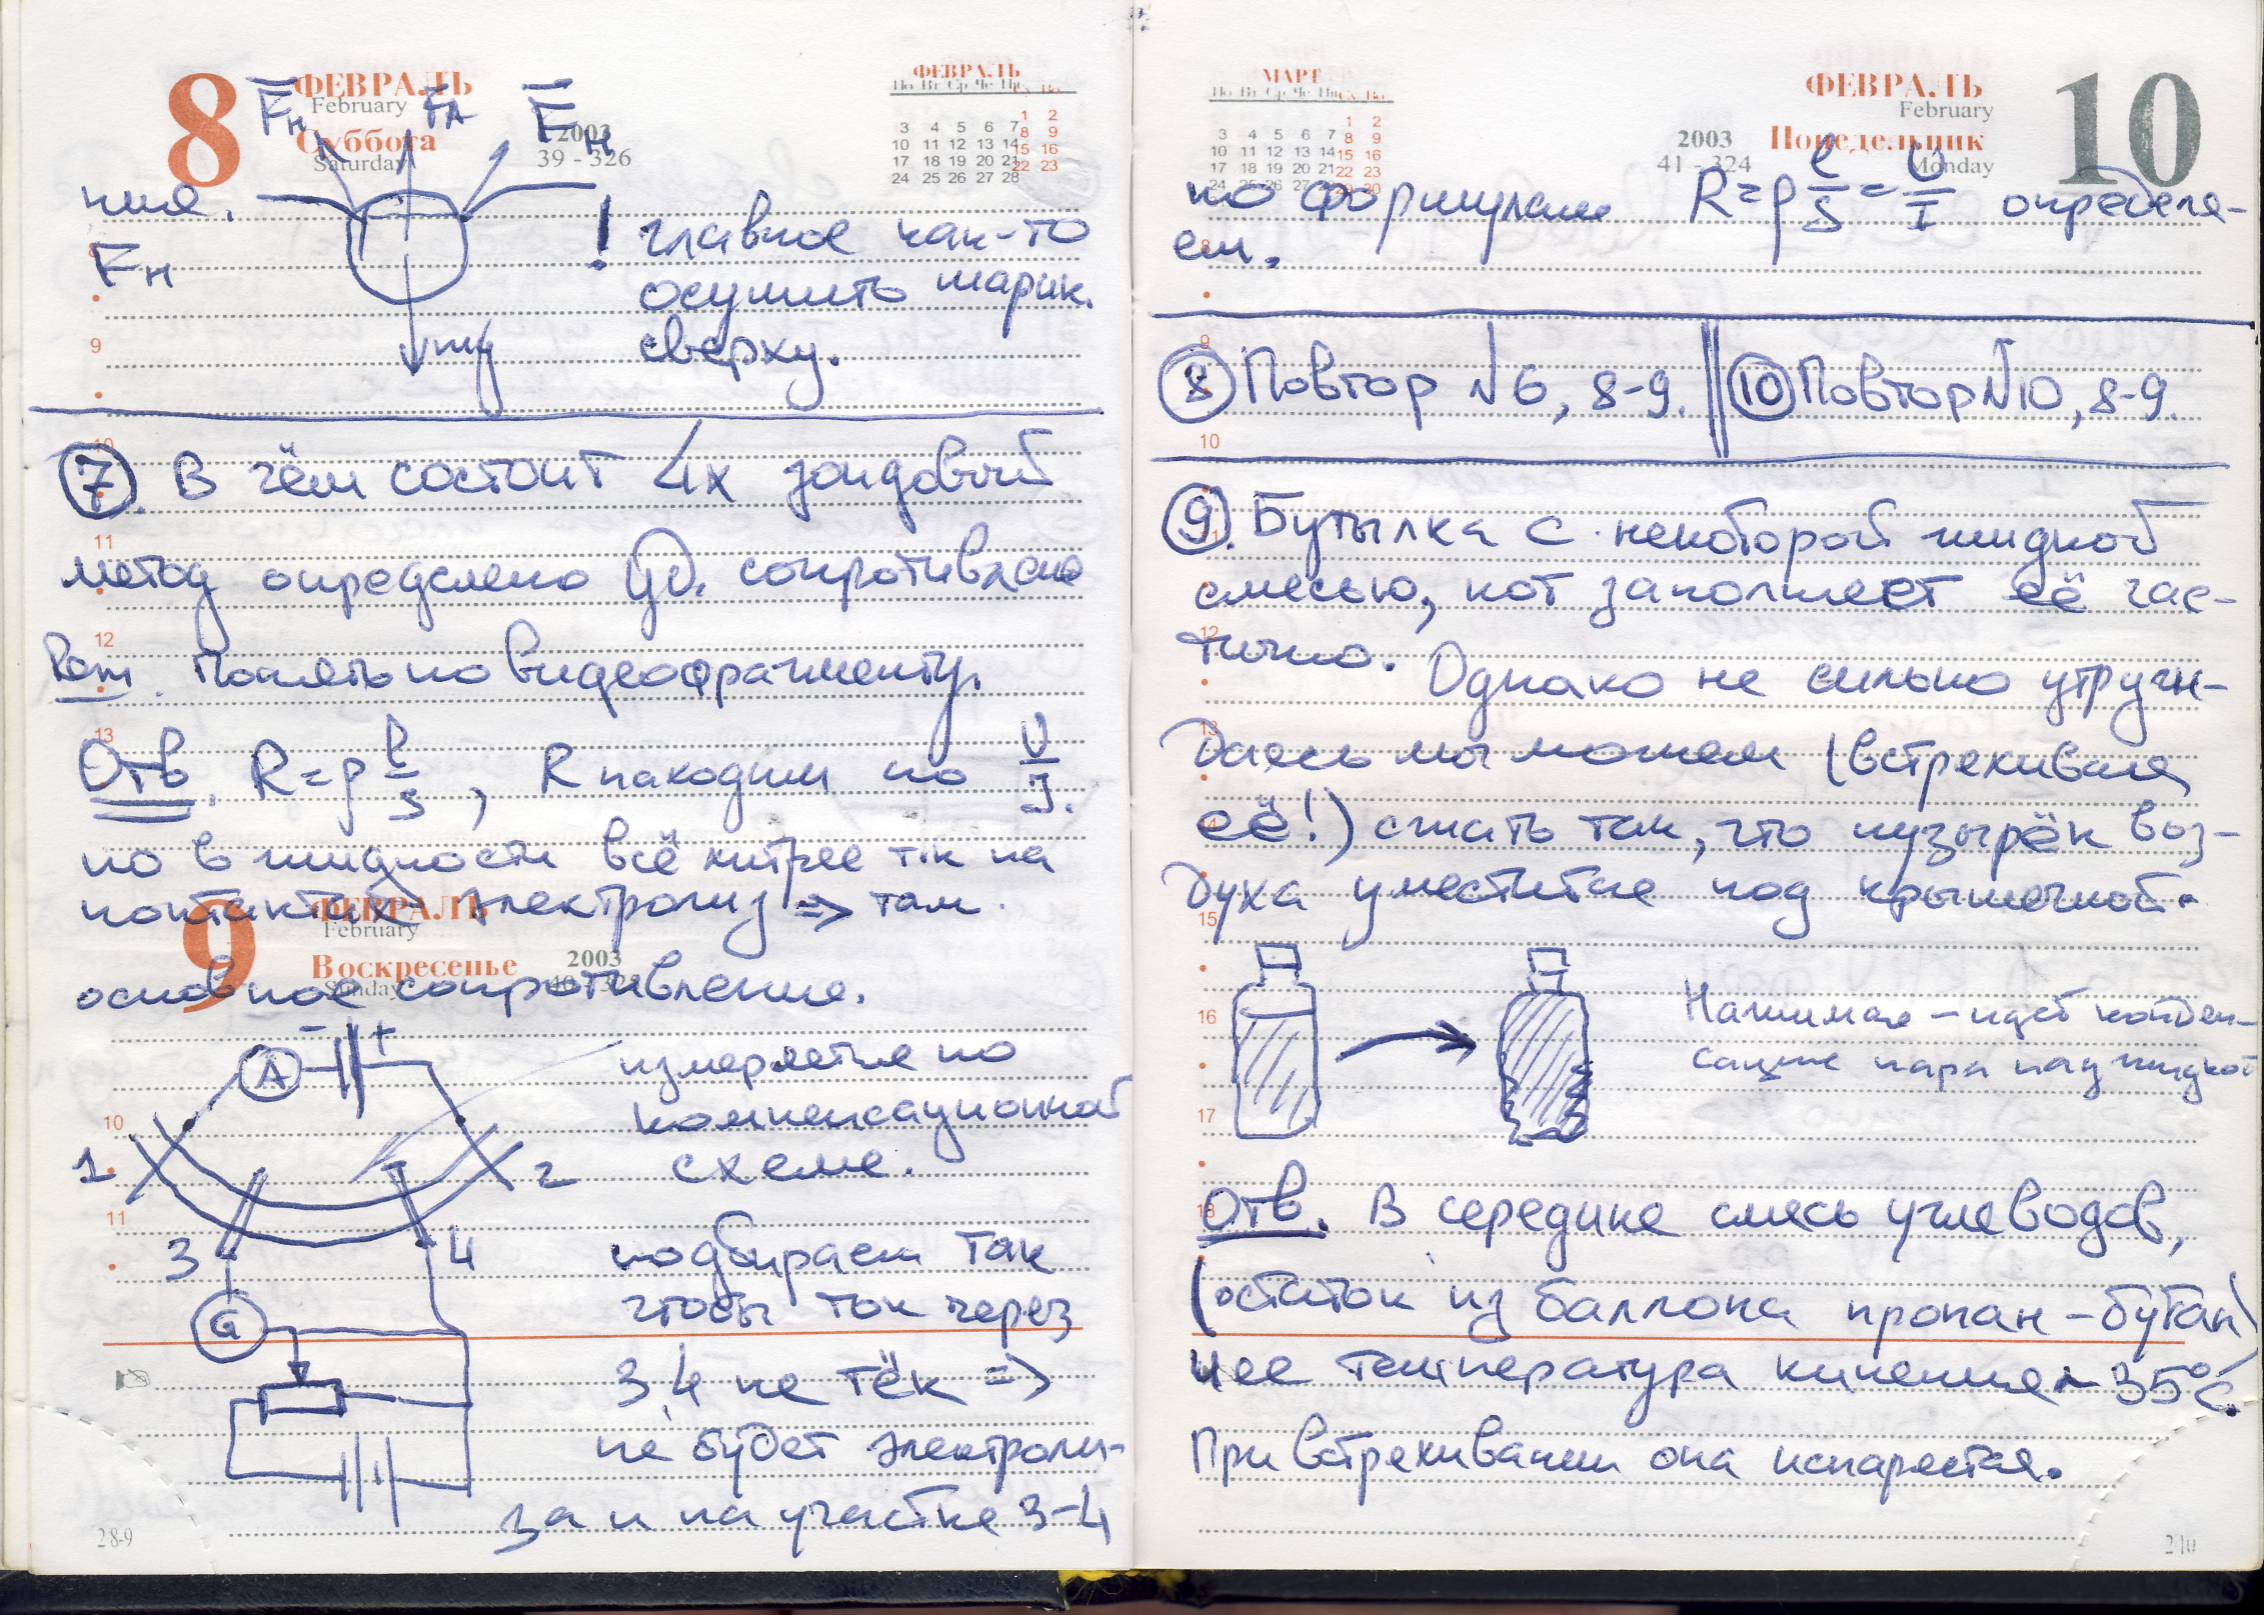 8
ФЕВРАЛЬ
February
Суббота
Saturday
2003
39 - 326
ФЕВРАЛЬ
По Вт Ср Че Пя Су Во
1 2
3 4 5 6 7 8 9
10 11 12 13 14 15 16
17 18 19 20 21 22 23
24 25 26 27 28
Fн FA Fн
ния.
Fн
mg
! главное как-то
осушить шарик.
сверху.
7. В чём состоит 4х зондовый
метод определено уд. сопротивление
Реш. Понять по видеофрагменту.
Отв. R=ρ l/S, R находим по U/I.
но в жидкости всё хитрее т.к на
контактах электролиз => там
9
ФЕВРАЛЬ
February
Воскресенье
Sunday
2003
основное сопротивление.
A - +
измеряется по
компенсационной
схеме.
1 2
3 4
G
подбираем так
чтобы ток через
3,4 не тёк =>
не будет электроли-
за и на участке 3-4
28-9
МАРТ
По Вт Ср Че Пя Су Во
1 2
3 4 5 6 7 8 9
10 11 12 13 14 15 16
17 18 19 20 21 22 23
24 25 26 27 28 29 30
ФЕВРАЛЬ
February
2003
Понедельник
41 - 324
Monday
10
по формулам R=ρ l/S = U/I определя-
ем.
8 Повтор №6, 8-9. 10 Повтор №10, 8-9.
9. Бутылка с некоторой жидкой
смесью, кот заполняет её час-
тично. Однако не сильно утруж-
даясь мы можем (встрехивая
её!) сжать так, что пузырёк воз-
духа уместится под крышечкой.
Нажимая – идёт конден-
сация пара над жидкой
Отв. В середине смесь углеводов,
(остаток из баллона пропан-бутан)
нее температура кипения ~ 35°C.
При встрехивании она испаряется.
210